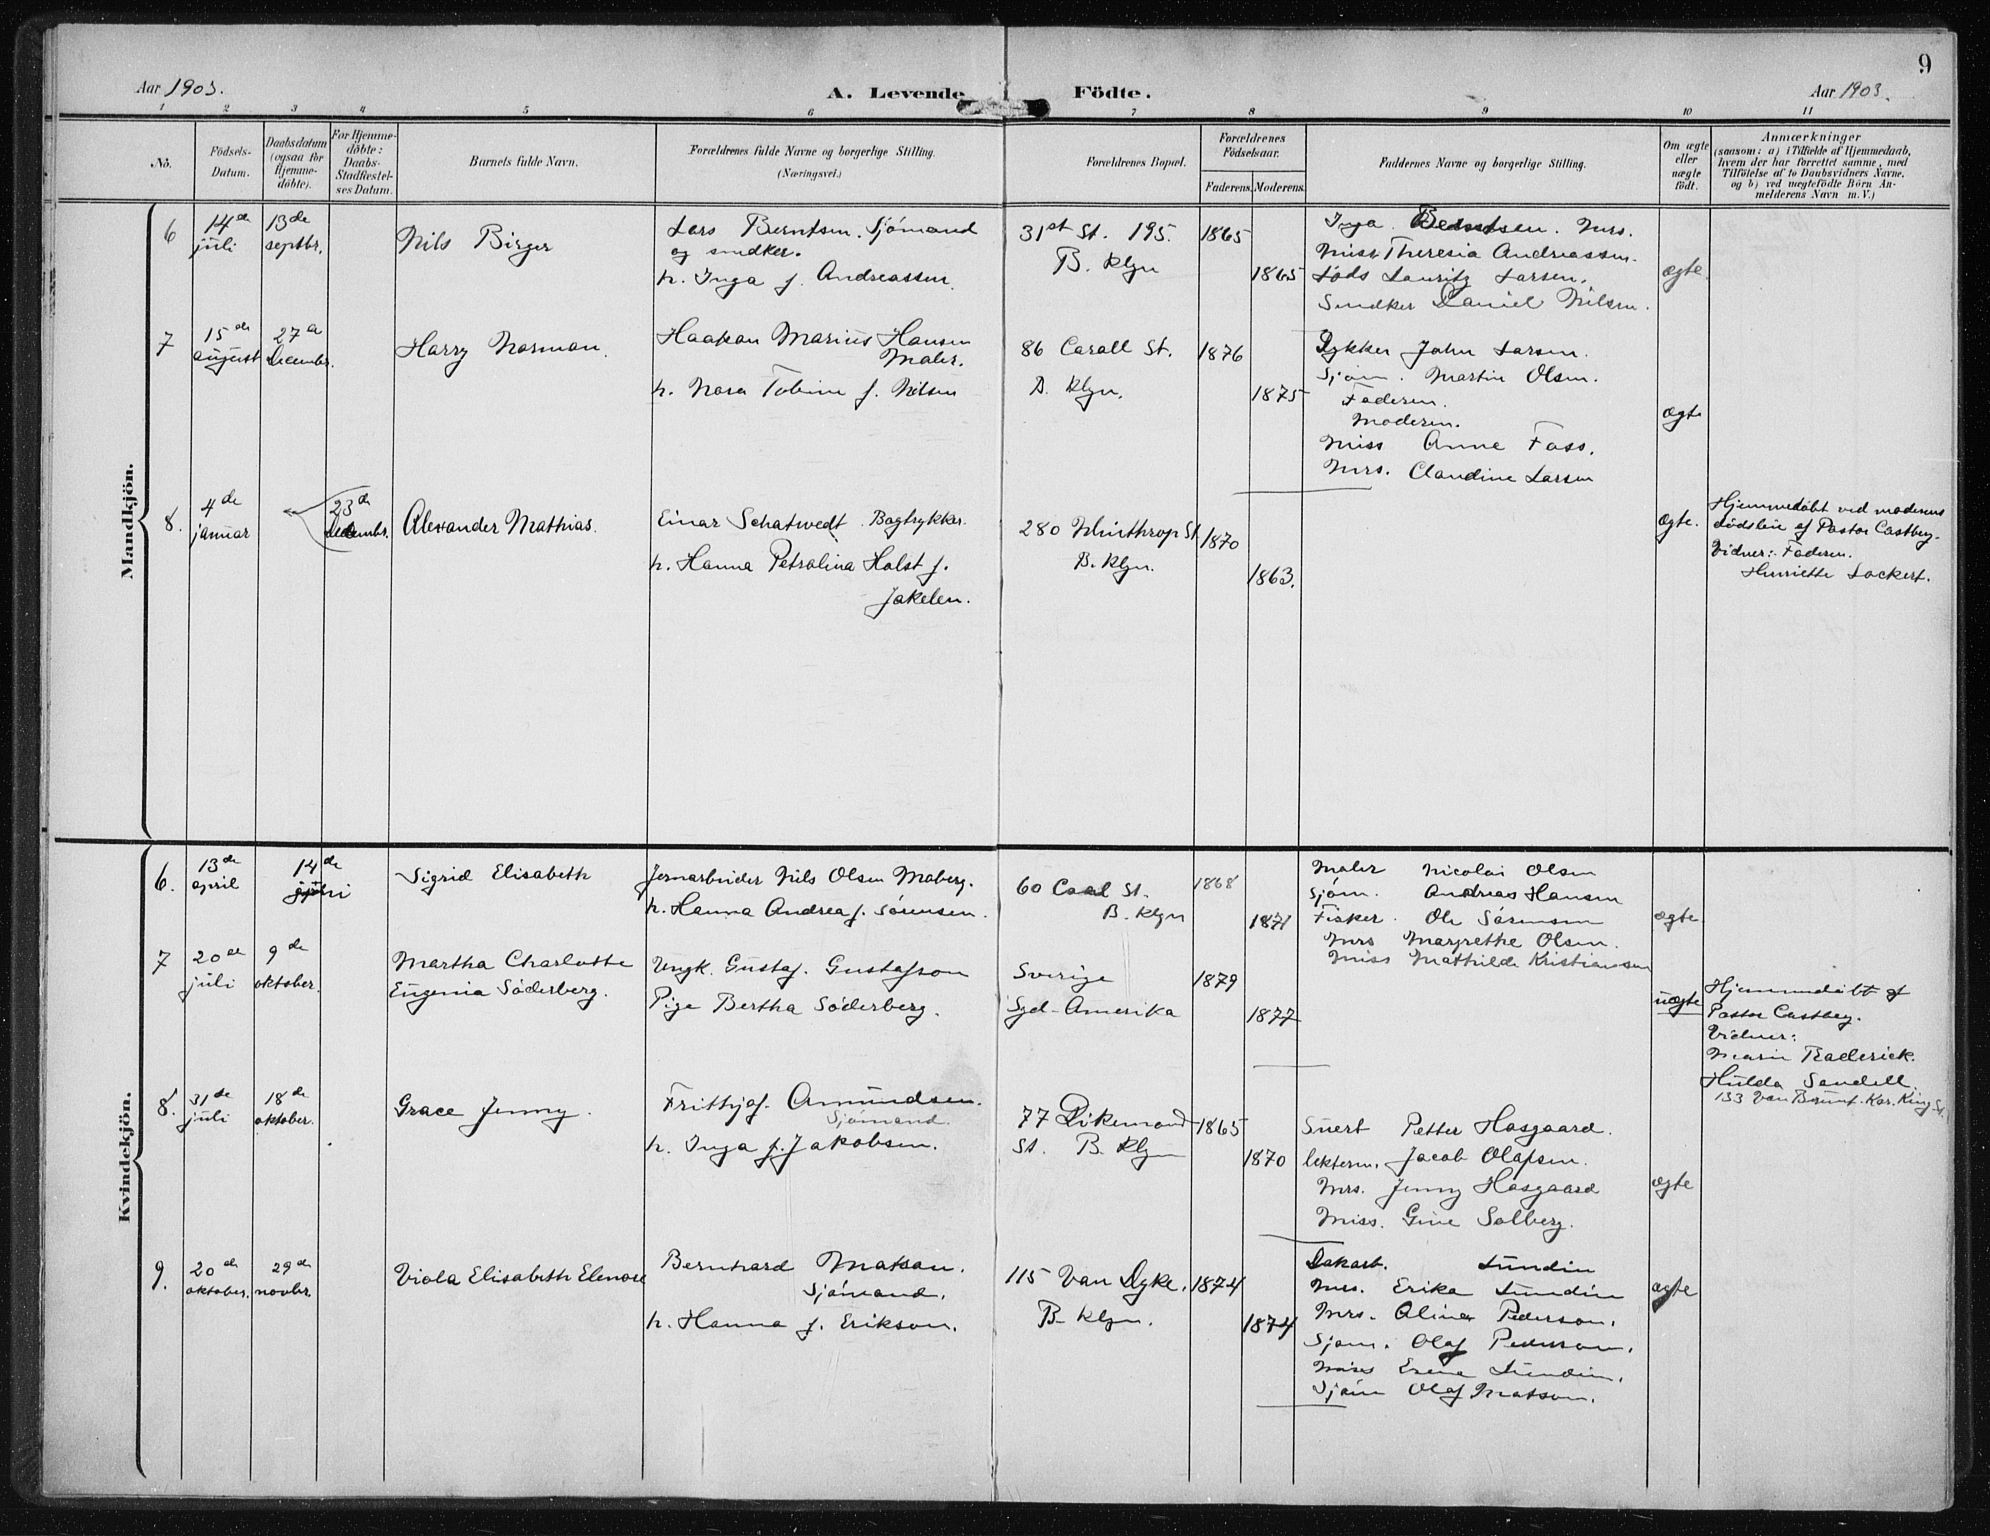 9
Aar 1903.
A. Levende Födte.
Aar 1903.
1 2 3 4 5 6 7 8 9 10 11
No.
Födsels-Datum.
Daabsdatum (ogsaa for Hjemme-döbte).
For Hjemme-döbte: Daabs-Stadfæstel-ses Datum.
Barnets fulde Navn.
Forældrenes fulde Navne og borgerlige Stilling.
(Næringsvei.)
Forældrenes Bopæl.
Forældrenes Födselsaar.
Faderens. Moderens.
Faddernes Navne og borgerlige Stilling.
Om ægte eller uægte födt.
Anmærkninger
(saasom: a) i Tilfælde af Hjemmedaab,
hvem der har forrettet samme, med
Tilföielse af to Daabsvidners Navne,
og b) ved uægtefödte Börn An-
melderens Navn m. V.)
Mandkjön.
6 14de juli 13de septbr.
Nils Birger
Lars Berntsen. Sjömand
og snedker.
h. Inga f. Andreassen.
31st St. 195.
B. klyn
1865
1865
Inga Berntsen. Mrs.
Miss Theresia Andreassen.
Lods Lauritz Larsen.
Snedker Daniel Nilsen.
ægte.
7 15de august 27de Decembr.
Harry Norman.
Haakon Marius Hansen
Maler.
h. Nora Tobine f. Nilsen
86 Caroll St.
B. klyn.
1876
1875
Dykker John Larsen.
Sjöm. Martin Olsen.
Faderen.
Moderen.
Miss Anne Foss.
Mrs. Claudine Larsen
ægte
8. 4de januar 23de Decembr.
Alexander Mathias.
Einar Schatwedt. Bogtrykker.
h. Hanna Petroline Holst f.
Jakelen.
280 Winthrop St.
B. klyn.
1870
1863.
ægte.
Hjemmedöbt ved moderens
dödsleie af Pastor Castberg.
Vidner: Faderen.
Henriette Lockert.
Kvindekjön.
6. 13de april 14de juli
Sigrid Elisabeth
Jernarbeider Nils Olsen Moberg.
h. Hanna Andrea f. Sörensen.
60 Coal St.
B. klyn
1868
1871
Maler Nicolai Olsen
Sjöm. Andreas Hansen
Fisker. Ole Sörensen
Mrs Margrethe Olsen.
Miss Mathilde Kristiansen
ægte
7 20de juli 9de oktober.
Martha Charlotte
Eugenia Söderberg.
Ungk. Gustaf. Gustafson
Pige Bertha Söderberg.
Sverige
Syd-Amerika
1879
1877
uægte
Hjemmedöbt af
Pastor Castberg.
Vidner:
Marie Raderick.
Hulda Sandell.
133 Van Brunt. Kor. King St.
8. 31de juli 18de oktober.
Grace Jenny.
Frithjof. Amundsen.
Sjömand.
h. Inga f. Jakobsen.
77 Dikemond
St. B. klyn
1865
1870
Petter Hasgaard.
Jacob Olafsen.
Mrs. Jenny Hasgaard
Miss. Gine Solberg.
ægte
9. 20de oktober. 29de novbr.
Viola Elisabeth Elenore
Bernhard Matson.
Sjömand.
h. Hanna f. Erikson.
115 Van Dyke.
B. klyn.
1874
1874
Dokarb. Lundin
Mrs. Erika Lundin
Mrs. Alina Pederson.
Sjöm. Olaf Pederson.
Miss Erene Lundin.
Sjöm Olaf Matson.
ægte